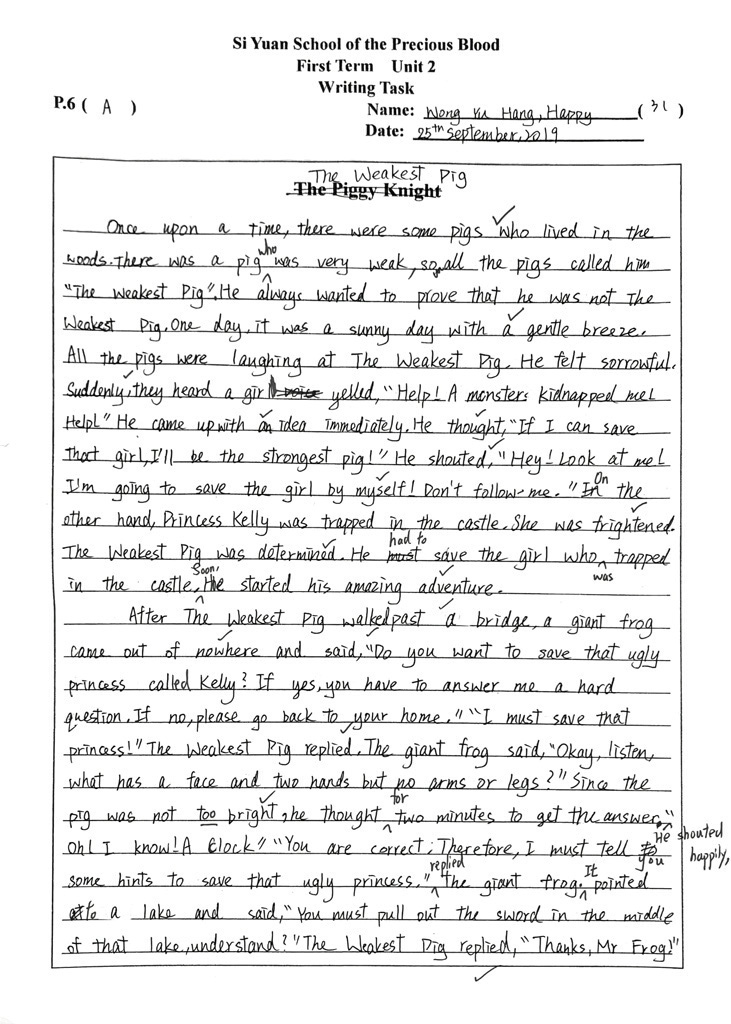 Si Yuan School of the Precious Blood
First Term Unit 2
Writing Task
P.6 ( A ) Name: Wong Yu Hang, Happy ( 31 )
Date: 25th September, 2019
The Weakest Pig
The Piggy Knight
Once upon a time, there were some pigs who lived in the
woods. There was a pig who was very weak, so all the pigs called him
"The Weakest Pig". He always wanted to prove that he was not The
Weakest Pig. One day, it was a sunny day with a gentle breeze.
All the pigs were laughing at The Weakest Pig. He felt sorrowful.
Suddenly, they heard a girl voice yelled, "Help! A monsters kidnapped me!
Help!" He came up with an idea immediately. He thought, "If I can save
that girl, I'll be the strongest pig!" He shouted, "Hey! Look at me!
I'm going to save the girl by myself! Don't follow me." In On the
other hand, Princess Kelly was trapped in the castle. She was frightened.
The Weakest Pig was determined. He must had to save the girl who was trapped
in the castle. Soon, He started his amazing adventure.
After The Weakest Pig walked past a bridge, a giant frog
came out of nowhere and said, "Do you want to save that ugly
princess called Kelly? If yes, you have to answer me a hard
question. If no, please go back to your home." "I must save that
princess!" The Weakest Pig replied. The giant frog said, "Okay, listen,
what has a face and two hands but no arms or legs?" Since the
pig was not too bright, he thought for two minutes to get the answer. "
Oh! I know! A Clock!" He shouted happily, "You are correct. Therefore, I must tell you
some hints to save that ugly princess." replied the giant frog. It pointed
to a lake and said, "You must pull out the sword in the middle
of that lake, understand?" The Weakest Pig replied, "Thanks, Mr Frog!"